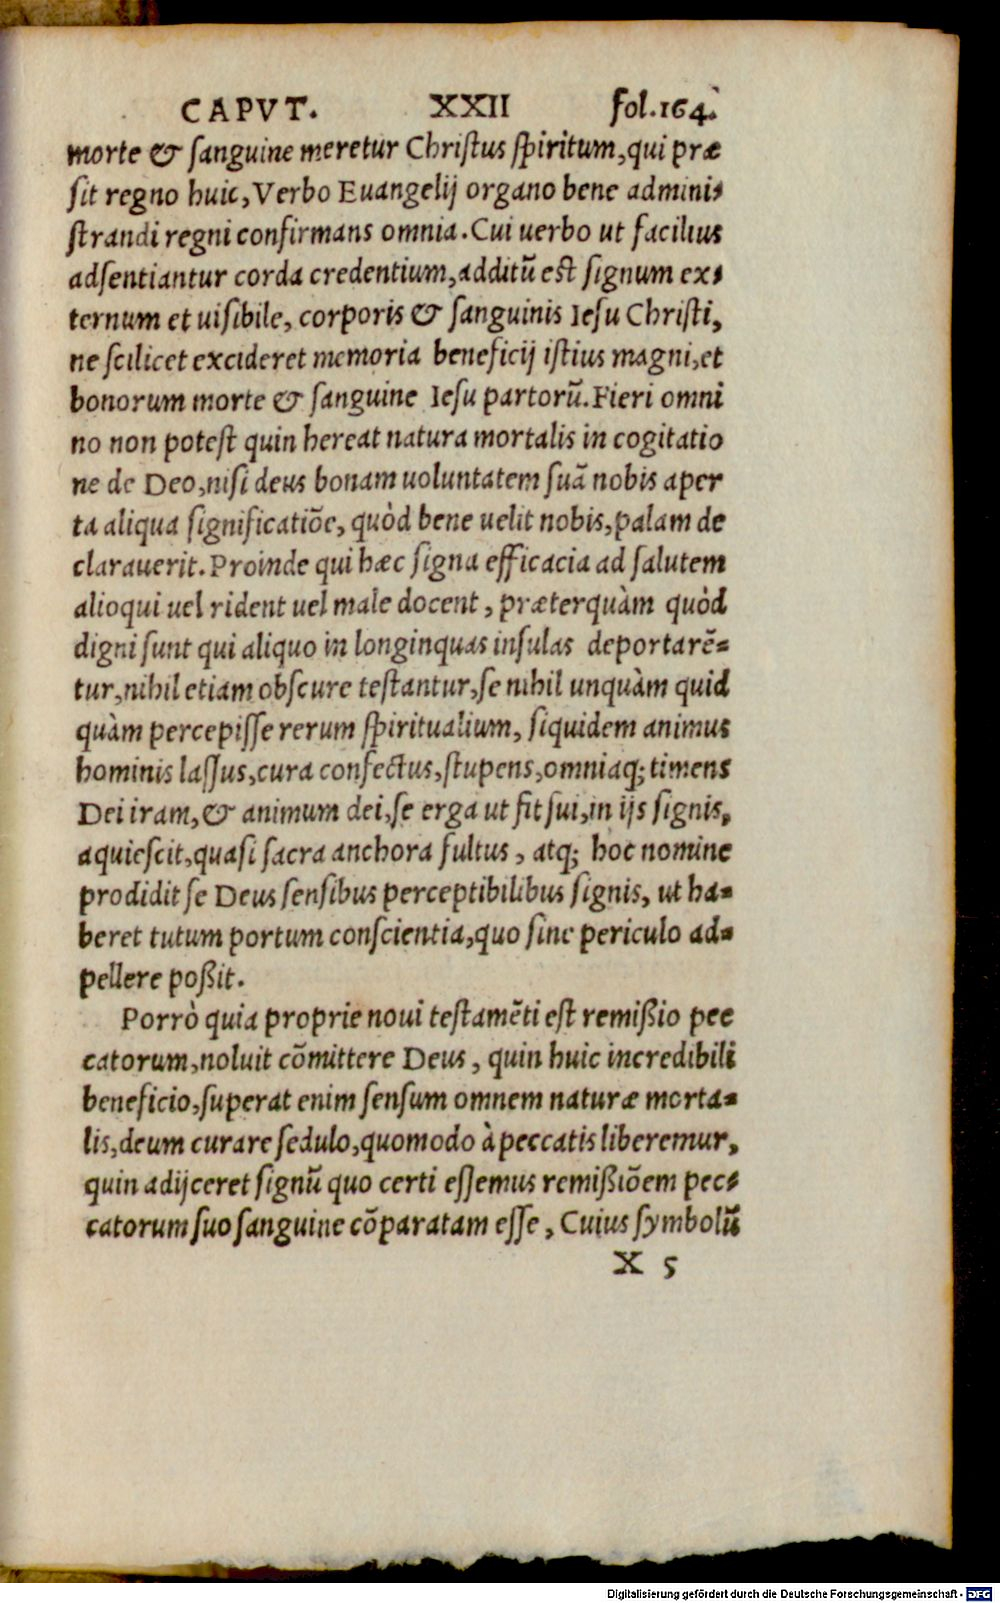 CAPVT. XXII fol. 164.
morte & ſanguine meretur Chriſtus ſpiritum, qui præ
ſit regno huic, Verbo Euangelij organo bene admini-
ſtrandi regni confirmans omnia. Cui uerbo ut facilius
adſentiantur corda credentium, additũ eſt ſignum ex-
ternum et uiſibile, corporis & ſanguinis Ieſu Chriſti,
ne ſcilicet excideret memoria beneficij iſtius magni, et
bonorum morte & ſanguine Ieſu partorũ. Fieri omni
no non poteſt quin hereat natura mortalis in cogitatio
ne de Deo, niſi deus bonam uoluntatem ſuã nobis aper
ta aliqua ſignificatiõe, quòd bene uelit nobis, palam de
clarauerit. Proinde qui hæc ſigna efficacia ad ſalutem
alioqui uel rident uel male docent, præterquàm quòd
digni ſunt qui aliquo in longinquas inſulas deportarẽ-
tur, nihil etiam obſcure teſtantur, ſe nihil unquàm quid
quàm percepiſſe rerum ſpiritualium, ſiquidem animus
hominis laſſus, cura confectus, ſtupens, omniaq; timens
Dei iram, & animum dei, ſe erga ut fit ſui, in ijs ſignis,
aquieſcit, quaſi ſacra anchora fultus, atq; hoc nomine
prodidit ſe Deus ſenſibus perceptibilibus ſignis, ut ha-
beret tutum portum conſcientia, quo ſine periculo ad-
pellere poßit.
Porrò quia proprie noui teſtamẽti eſt remißio pec
catorum, noluit cõmittere Deus, quin huic incredibili
beneficio, ſuperat enim ſenſum omnem naturæ morta-
lis, deum curare ſedulo, quomodo à peccatis liberemur,
quin adijceret ſignũ quo certi eſſemus remißiõem pec-
catorum ſuo ſanguine cõparatam eſſe, Cuius ſymbolũ
X 5
Digitalisierung gefördert durch die Deutsche Forschungsgemeinschaft - DFG